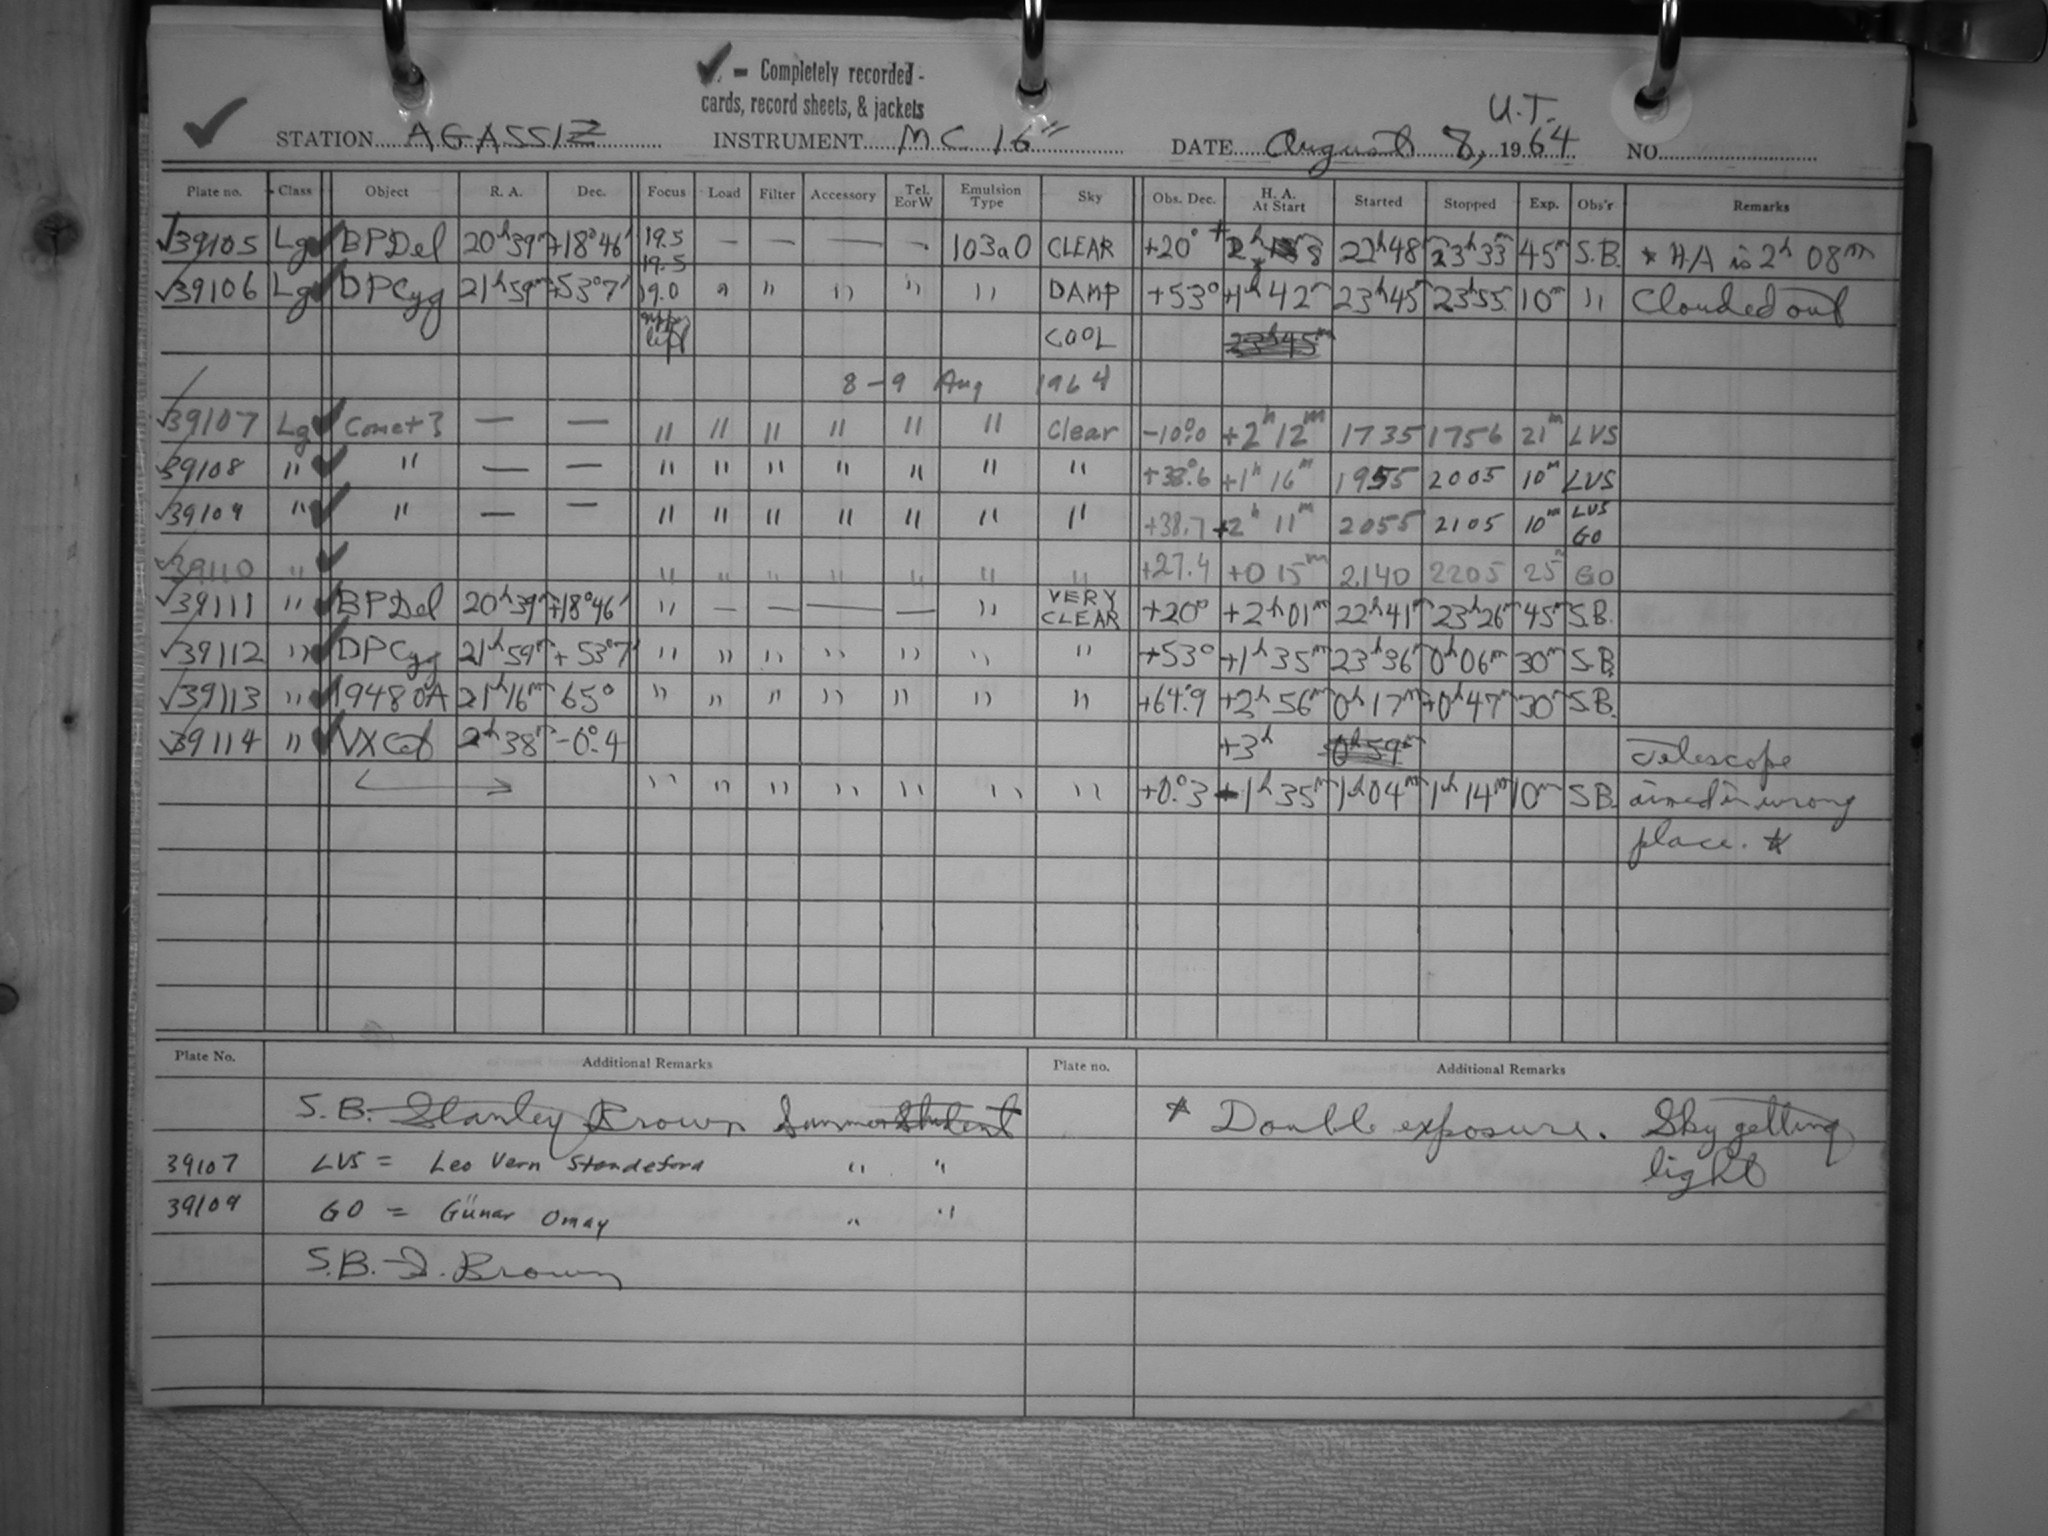 ✓ - Completely recorded -
cards, record sheets, & jackets
U.T.
✓ STATION AGASSIZ INSTRUMENT MC 16" DATE August 8, 1964 NO.
Plate no. Class Object R. A. Dec. Focus Load Filter Accessory Tel. E or W Emulsion Type Sky Obs. Dec. H. A. At Start Started Stopped Exp. Obs'r Remarks
√39105 Lg ✓ BPDel 20h39m +18°46' 19.5 19.5 — — — — 103a0 CLEAR +20° + 2h 8 22h48m 23h33m 45m S.B. * HA is 2h 08m
√39106 Lg ✓ DPCyg 21h59m +53°7' 19.0 " " " " " DAMP +53° +1h 42m 23h45m 23h55 10m " Clouded out
upper left COOL 23h45m
8-9 Aug 1964
√39107 Lg ✓ Comet? — — " " " " " " Clear -10°.0 +2h 12m 1735 1756 21m LVS
√39108 " ✓ " — — " " " " " " " +38°.6 +1h 16m 1955 2005 10m LVS
√39109 " ✓ " — — " " " " " " " +38.7 +2h 11m 2055 2105 10m LVS GO
√39110 " ✓ " " " " " " " +27.4 +0 15m 2140 2205 25m GO
√39111 " ✓ BPDel 20h39m +18°46' " — — — — " VERY CLEAR +20° +2h01m 22h41m 23h26m 45m S.B.
√39112 " ✓ DPCyg 21h59m +53°7' " " " " " " " +53° +1h35m 23h36m 0h06m 30m S.B.
√39113 " ✓ 19480A 21h16m 65° " " " " " " " +64°.9 +2h56m 0h17m 0h47m 30m S.B.
√39114 " ✓ VXCet 2h38m -0°.4 +3h 0h59m Telescope
" " " " " " " +0°.3 -1h35m 1h04m 1h14m 10m S.B. aimed in wrong
place. *
Plate No. Additional Remarks Plate no. Additional Remarks
S.B. Stanley Brown Summer Student * Double exposure. Sky getting
39107 LVS = Leo Vern Standeford " " light
39109 GO = Günar Omay " "
S.B. - S. Brown